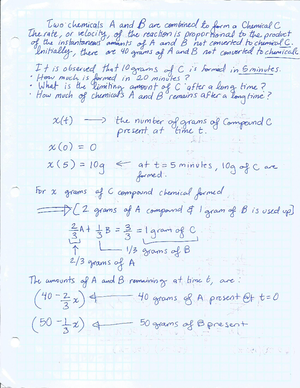 Two chemicals A and B are combined to form a Chemical C
The rate, or velocity, of the reaction is proportional to the product
of the instantaneous amounts of A and B not converted to chemical C.
Initially, there are 40 grams of A and B not converted to chemical C
It is observed that 10 grams of C is formed in 5 minutes.
• How much is formed in 20 minutes?
• What is the limiting amount of C after a long time?
• How much of chemicals A and B remains after a long time?
x(t) → the number of grams of Compound C
present at time t.
x(0) = 0
x(5) = 10g ← at t = 5 minutes, 10g of C are
formed.
For x grams of C compound chemical formed
⇒ [2 grams of A compound & 1 gram of B is used up]
2/3 A + 1/3 B = 3/3 = 1 gram of C
1/3 grams of B
2/3 grams of A
The amounts of A and B remaining at time t, are:
(40 - 2/3 x) ← 40 grams of A present @ t = 0
(50 - 1/3 x) ← 50 grams of B present